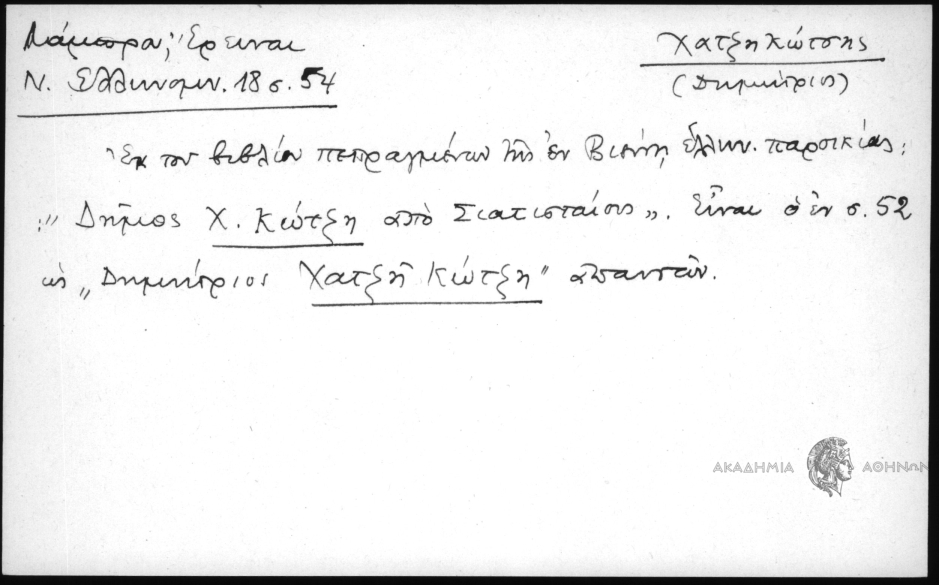 Λάμπρα, Ἔρευναι
Ν. Ἑλληνομν. 18 σ. 54
Χατζηκώτσης
(Δημήτριος)
Ἐκ τοῦ βιβλίου πεπραγμένων τῆς ἐν Βιέννῃ ἑλλην. παροικίας:
„Δῆμος Χ. Κώτζη ἀπὸ Σιατισταίσις„. Εἶναι ὁ ἐν σ. 52
ὡς „Δημήτριος Χατζῆ Κώτζη" ἀπαντῶν.
ΑΚΑΔΗΜΙΑ ΑΘΗΝΩΝ